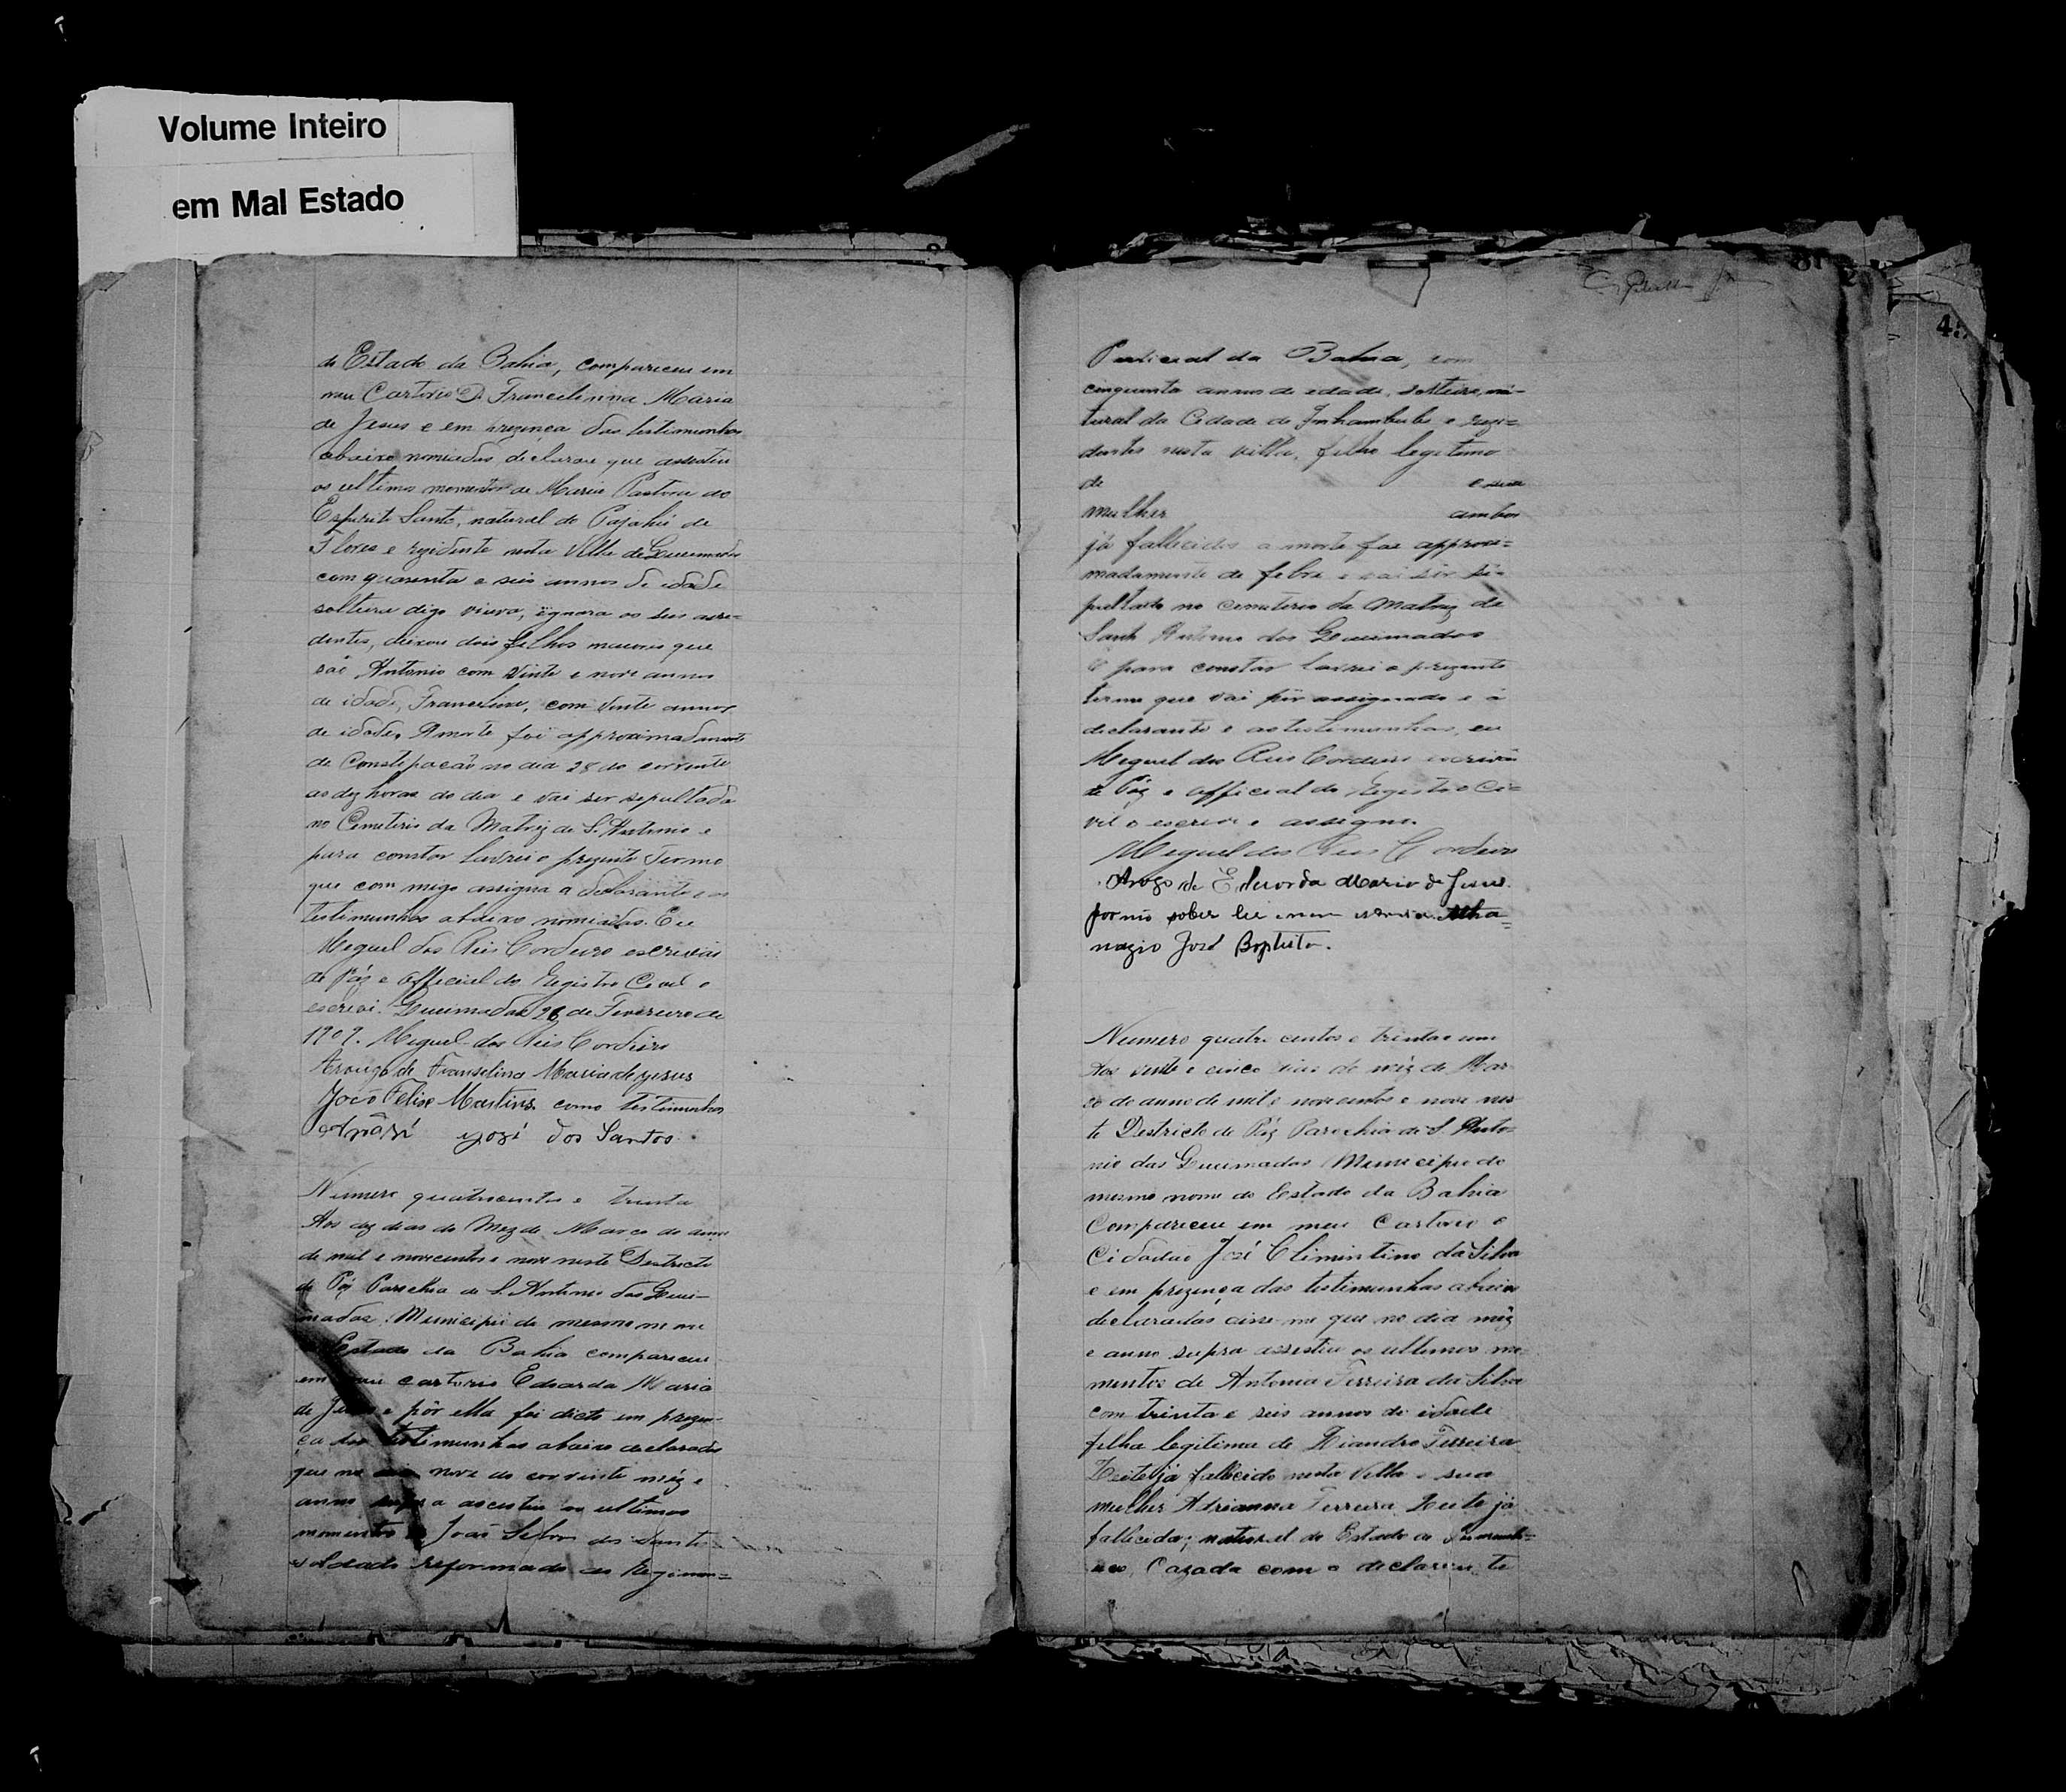 Volume Inteiro
em Mal Estado
do Estado da Bahia, compareceu em
meu Cartorio D. Francelinna Maria
de Jesus e em prezença das testimunhas
abaixo nomiadas, declarou que assistiu
os ultimos momentos de Maria Pastora do
Espirito Santo, natural de Pajahú de
Flores e rezidente nesta Villa de Queimadas
com quarenta e seis annos de idade
solteira digo viuva, ignora os seus acen=
dentes, deixou dois filhos maiores que
saõ Antonio com Vinte e nove annos
de idade, Francelina, com Vinte annos
de idade, A morte foi approximadamente
de Constipacaõ no dia 28 do corrente
as dez horas do dia e vai ser sepultada
no Cemiterio da Matriz de S. Antonio e
para constar lavrei o prezente Termo
que com migo assigna a declarante e as
testimunhas abaixo nomiadas. Eu
Miguel dos Reis Cordeiro escrivão
de Páz e Official do Registro Civil o
escrevi. Queimadas 28 de Fevereiro de
1909. Miguel dos Reis Cordeiro
Arougo de Franselina Maria de yesus
João Felix Martins como testimunhas
yozé dos Santos.
Numero quatrocentos e trinta
Aos dez dias do Mez de Março do anno
de mil e novecentos e nove neste Destricto
de Páz Parochia de S. Antonio das Quei-
madas, Municipio do mesmo nome
Estado da Bahia compareceu
em meu cartorio Eduarda Maria
de Jesus e pôr ella foi dicto em prezen-
ça das testimunhas abaixo declaradas
que no dia nove do corrente mêz e
anno supra assistiu os ultimos
momentos de João Silva dos Santos
soldado reformado do Regimen=
81
2
Policial da Bahia, com
cinquenta annos de edade, solteiro, na-
tural da Cidade de Inhambupe e rezi=
dente nesta villa, filho legitimo
de e sua
mulher ambos
já fallecidos a morte foi approxi=
madamente de febre e vai sêr se-
pultado no cemiterio da Matriz de
Santo Antonio das Queimadas
E para constar lavrei o prezente
termo que vai pôr assignado e á
declarante e as testimunhas, eu
Miguel dos Reis Cordeiro escrivão
de Páz e official do Registro Ci=
vil o escrevi e assigno.
Miguel dos Reis Cordeiro
Arogo de Eduarda Maria de Jesus.
por não saber ler e nem escrever. Atha=
nazio José Baptista.
Numero quatro centos e trinta e um
Aos vinte e cinco dias do mêz de Mar
ço do anno de mil e novecentos e nove nes
te Destricto de Páz Parochia de S. Anto=
nio das Queimadas Municipio do
mesmo nome do Estado da Bahia
Compareceu em meu Cartorio o
Cidadão José Climintino da Silva
e em prezença das testimunhas abaixo
declaradas disse me que no dia mêz
e anno supra assistiu os ultimos mo=
mentos de Antonia Ferreira da Silva
com trinta e seis annos de idade
filha legitima de Liandro Ferreira
Leite já fallecido nesta Villa e sua
mulher Adrianna Ferreira Leite já
fallecida; natural do Estado de Pernamb=
uco, Cazada com o declarante